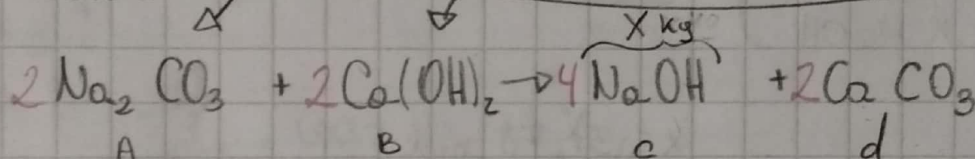 X kg
2 Na₂ CO₃ + 2 Ca(OH)₂ → 4 NaOH + 2 Ca CO₃
A B C d